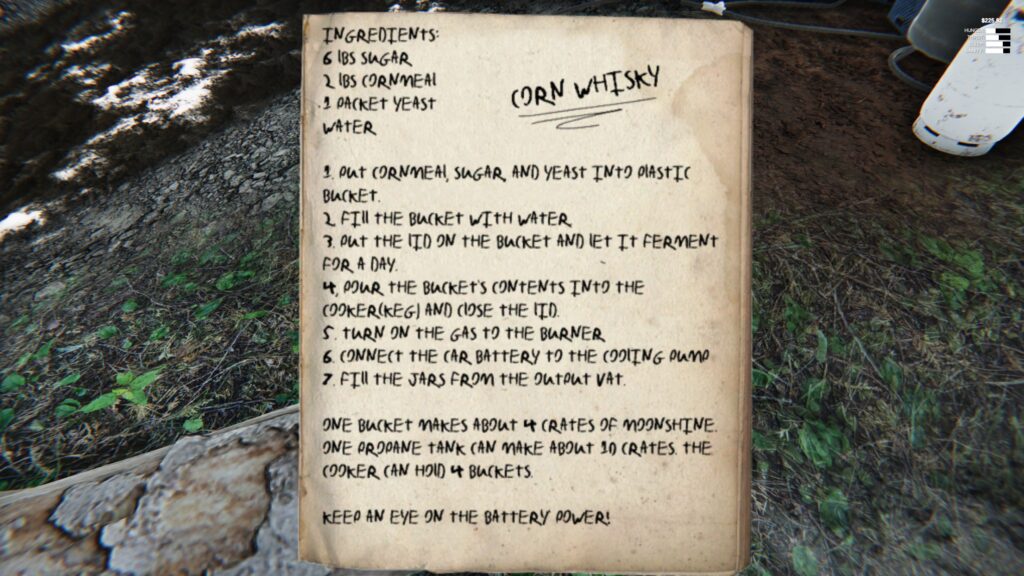 INGREDIENTS:
6 lBS SUGAR
2 lBS CORNMEAL
1 PACKET YEAST
WATER
CORN WHISKY
1. PUT CORNMEAL, SUGAR AND YEAST INTO PLASTIC
BUCKET.
2. FILL THE BUCKET WITH WATER
3. PUT THE LID ON THE BUCKET AND LET IT FERMENT
FOR A DAY.
4. POUR THE BUCKET'S CONTENTS INTO THE
COOKER(KEG) AND CLOSE THE LID.
5. TURN ON THE GAS TO THE BURNER
6. CONNECT THE CAR BATTERY TO THE COOLING PUMP
7. FILL THE JARS FROM THE OUTPUT VAT.
ONE BUCKET MAKES ABOUT 4 CRATES OF MOONSHINE.
ONE PROPANE TANK CAN MAKE ABOUT 10 CRATES. THE
COOKER CAN HOLD 4 BUCKETS.
KEEP AN EYE ON THE BATTERY POWER!